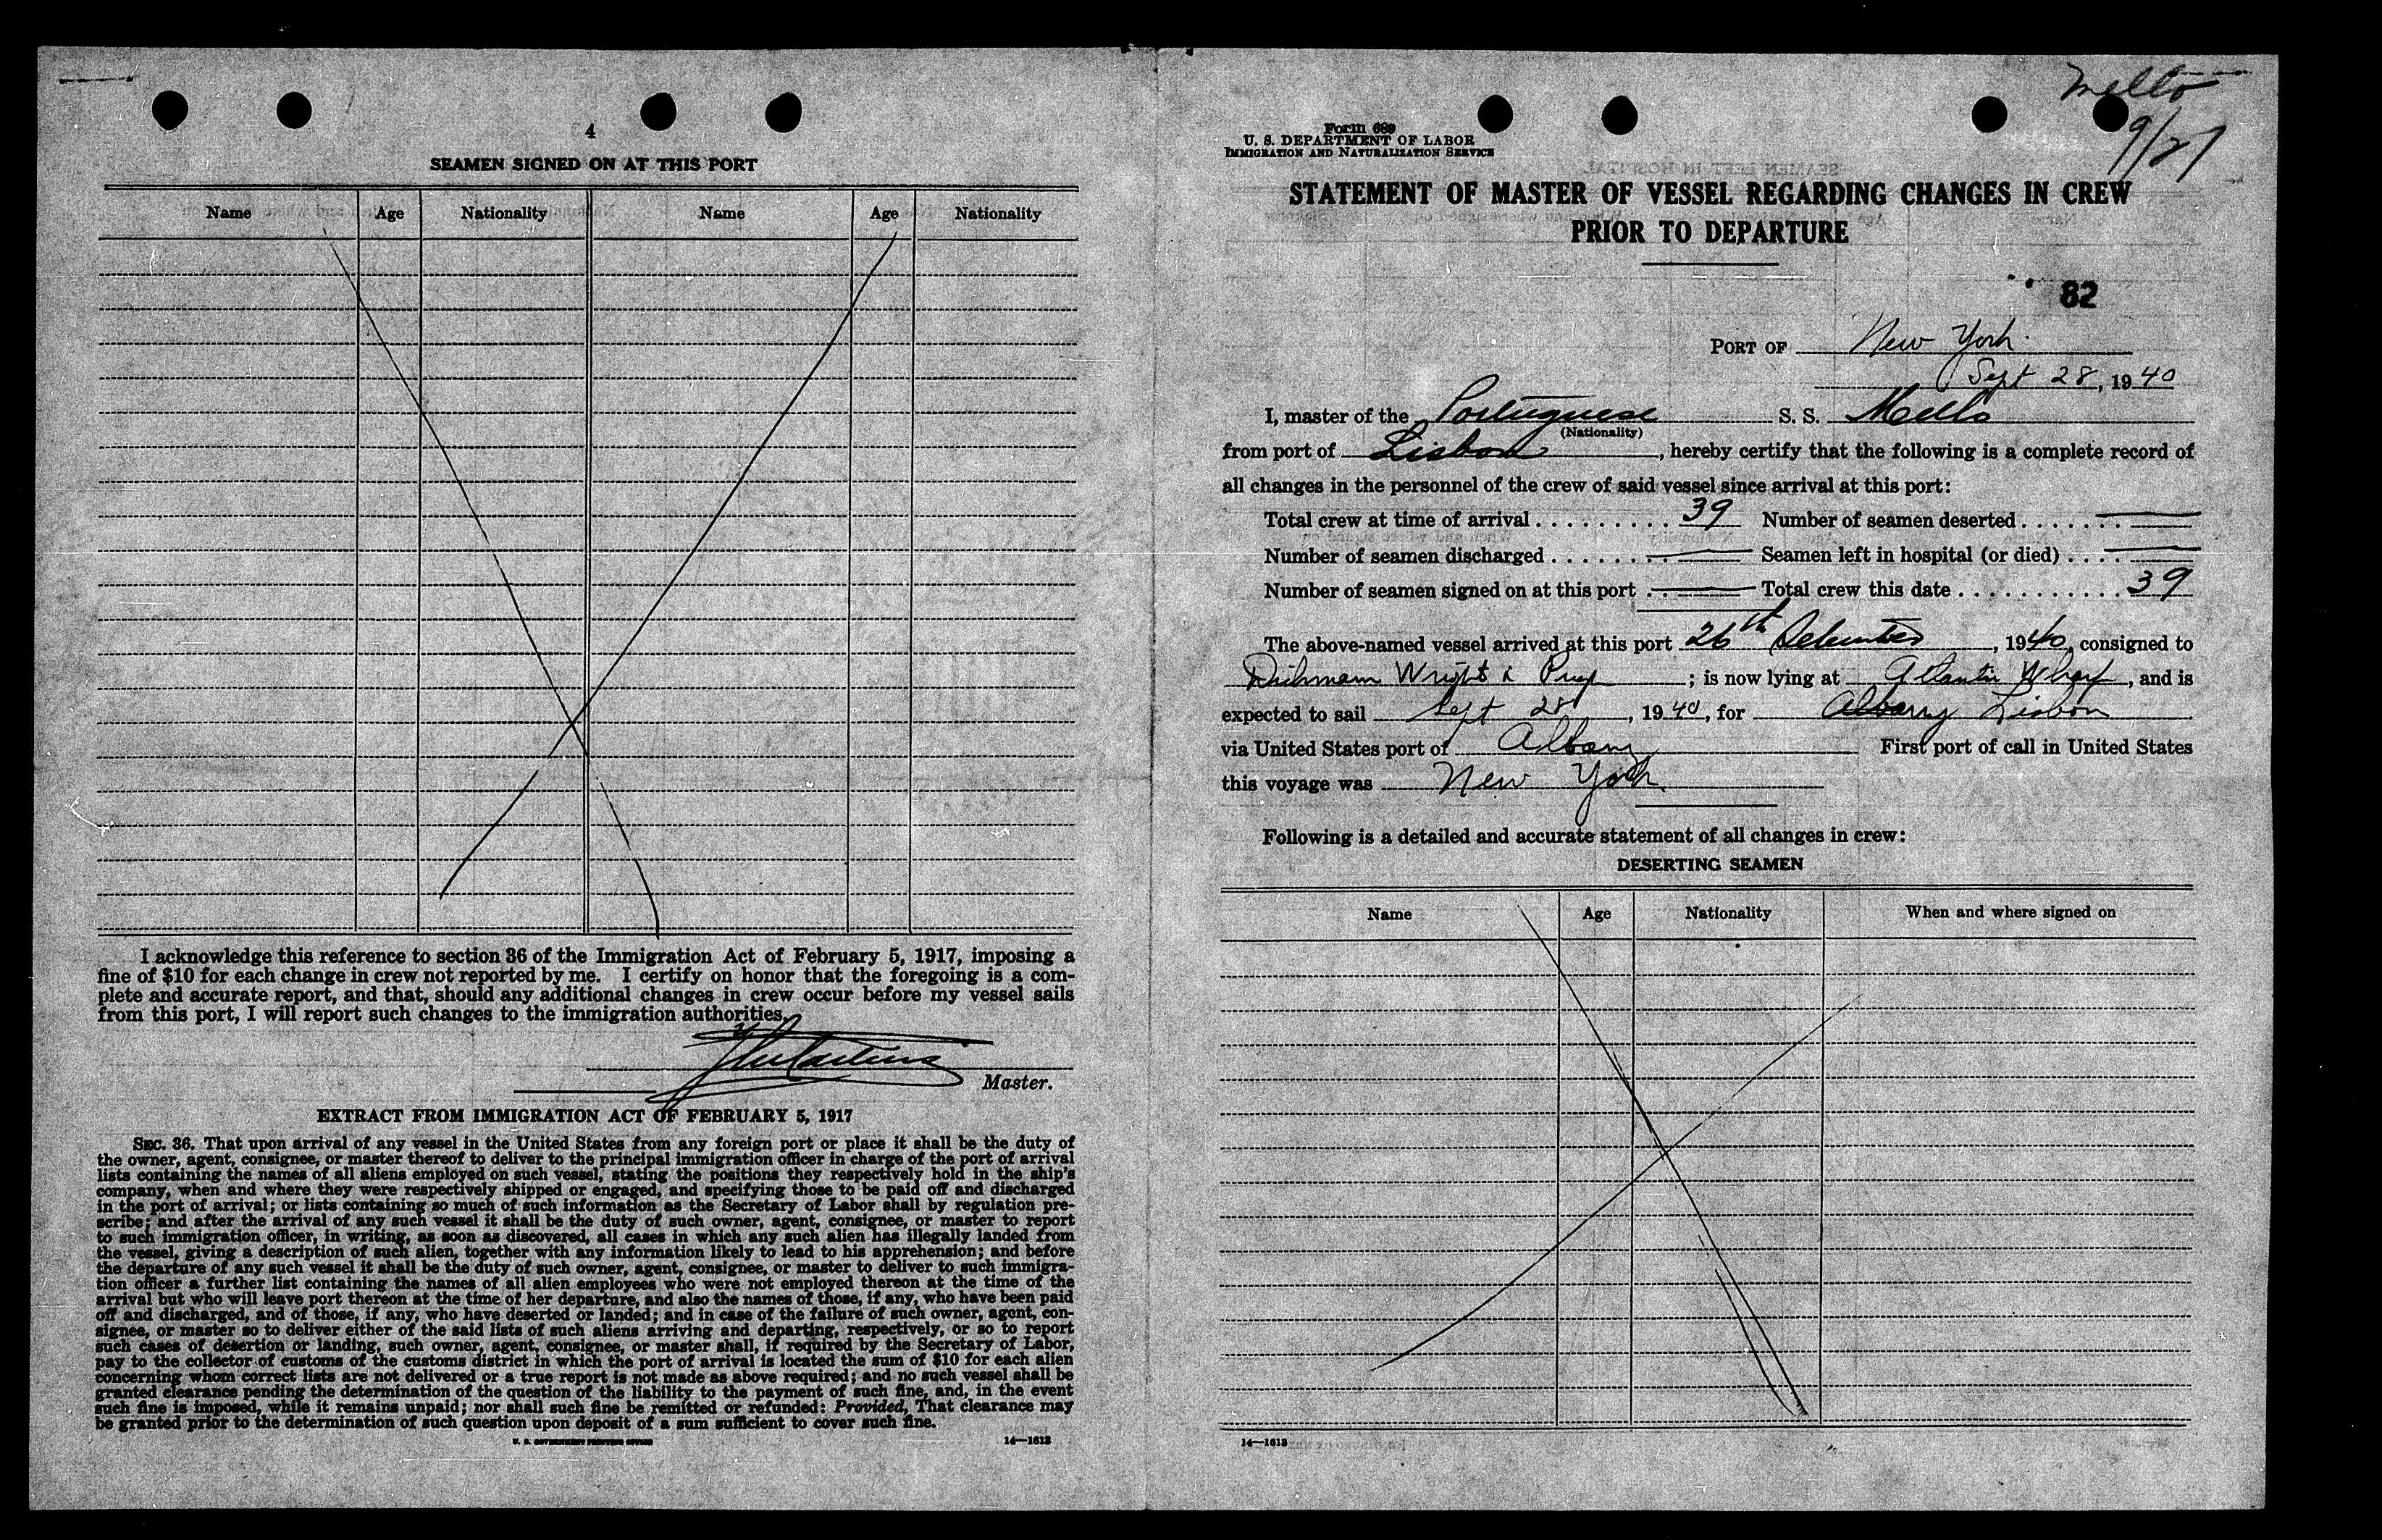 4
SEAMEN SIGNED ON AT THIS PORT
Name Age Nationality Name Age Nationality
I acknowledge this reference to section 36 of the Immigration Act of February 5, 1917, imposing a
fine of $10 for each change in crew not reported by me. I certify on honor that the foregoing is a com-
plete and accurate report, and that, should any additional changes in crew occur before my vessel sails
from this port, I will report such changes to the immigration authorities.
Master.
EXTRACT FROM IMMIGRATION ACT OF FEBRUARY 5, 1917
SEC. 36. That upon arrival of any vessel in the United States from any foreign port or place it shall be the duty of
the owner, agent, consignee, or master thereof to deliver to the principal immigration officer in charge of the port of arrival
lists containing the names of all aliens employed on such vessel, stating the positions they respectively hold in the ship's
company, when and where they were respectively shipped or engaged, and specifying those to be paid off and discharged
in the port of arrival; or lists containing so much of such information as the Secretary of Labor shall by regulation pre-
scribe; and after the arrival of any such vessel it shall be the duty of such owner, agent, consignee, or master to report
to such immigration officer, in writing, as soon as discovered, all cases in which any such alien has illegally landed from
the vessel, giving a description of such alien, together with any information likely to lead to his apprehension; and before
the departure of any such vessel it shall be the duty of such owner, agent, consignee, or master to deliver to such immigra-
tion officer a further list containing the names of all alien employees who were not employed thereon at the time of the
arrival but who will leave port thereon at the time of her departure, and also the names of those, if any, who have been paid
off and discharged, and of those, if any, who have deserted or landed; and in case of the failure of such owner, agent, con-
signee, or master so to deliver either of the said lists of such aliens arriving and departing, respectively, or so to report
such cases of desertion or landing, such owner, agent, consignee, or master shall, if required by the Secretary of Labor,
pay to the collector of customs of the customs district in which the port of arrival is located the sum of $10 for each alien
concerning whom correct lists are not delivered or a true report is not made as above required; and no such vessel shall be
granted clearance pending the determination of the question of the liability to the payment of such fine, and, in the event
such fine is imposed, while it remains unpaid; nor shall such fine be remitted or refunded: Provided, That clearance may
be granted prior to the determination of such question upon deposit of a sum sufficient to cover such fine.
U. S. GOVERNMENT PRINTING OFFICE 14—1613
Mello
9/27
Form 689
U. S. DEPARTMENT OF LABOR
IMMIGRATION AND NATURALIZATION SERVICE
STATEMENT OF MASTER OF VESSEL REGARDING CHANGES IN CREW
PRIOR TO DEPARTURE
82
PORT OF New York
Sept 28, 1940
I, master of the Portuguese S. S. Mello
(Nationality)
from port of Lisbon, hereby certify that the following is a complete record of
all changes in the personnel of the crew of said vessel since arrival at this port:
Total crew at time of arrival 39 Number of seamen deserted
Number of seamen discharged Seamen left in hospital (or died)
Number of seamen signed on at this port Total crew this date 39
The above-named vessel arrived at this port 26th, 1940, consigned to
Wright &; is now lying at Atlantic Wharf, and is
expected to sail Sept 28, 1940, for Albany Lisbon
via United States port of Albany First port of call in United States
this voyage was New York.
Following is a detailed and accurate statement of all changes in crew:
DESERTING SEAMEN
Name Age Nationality When and where signed on
14—1613